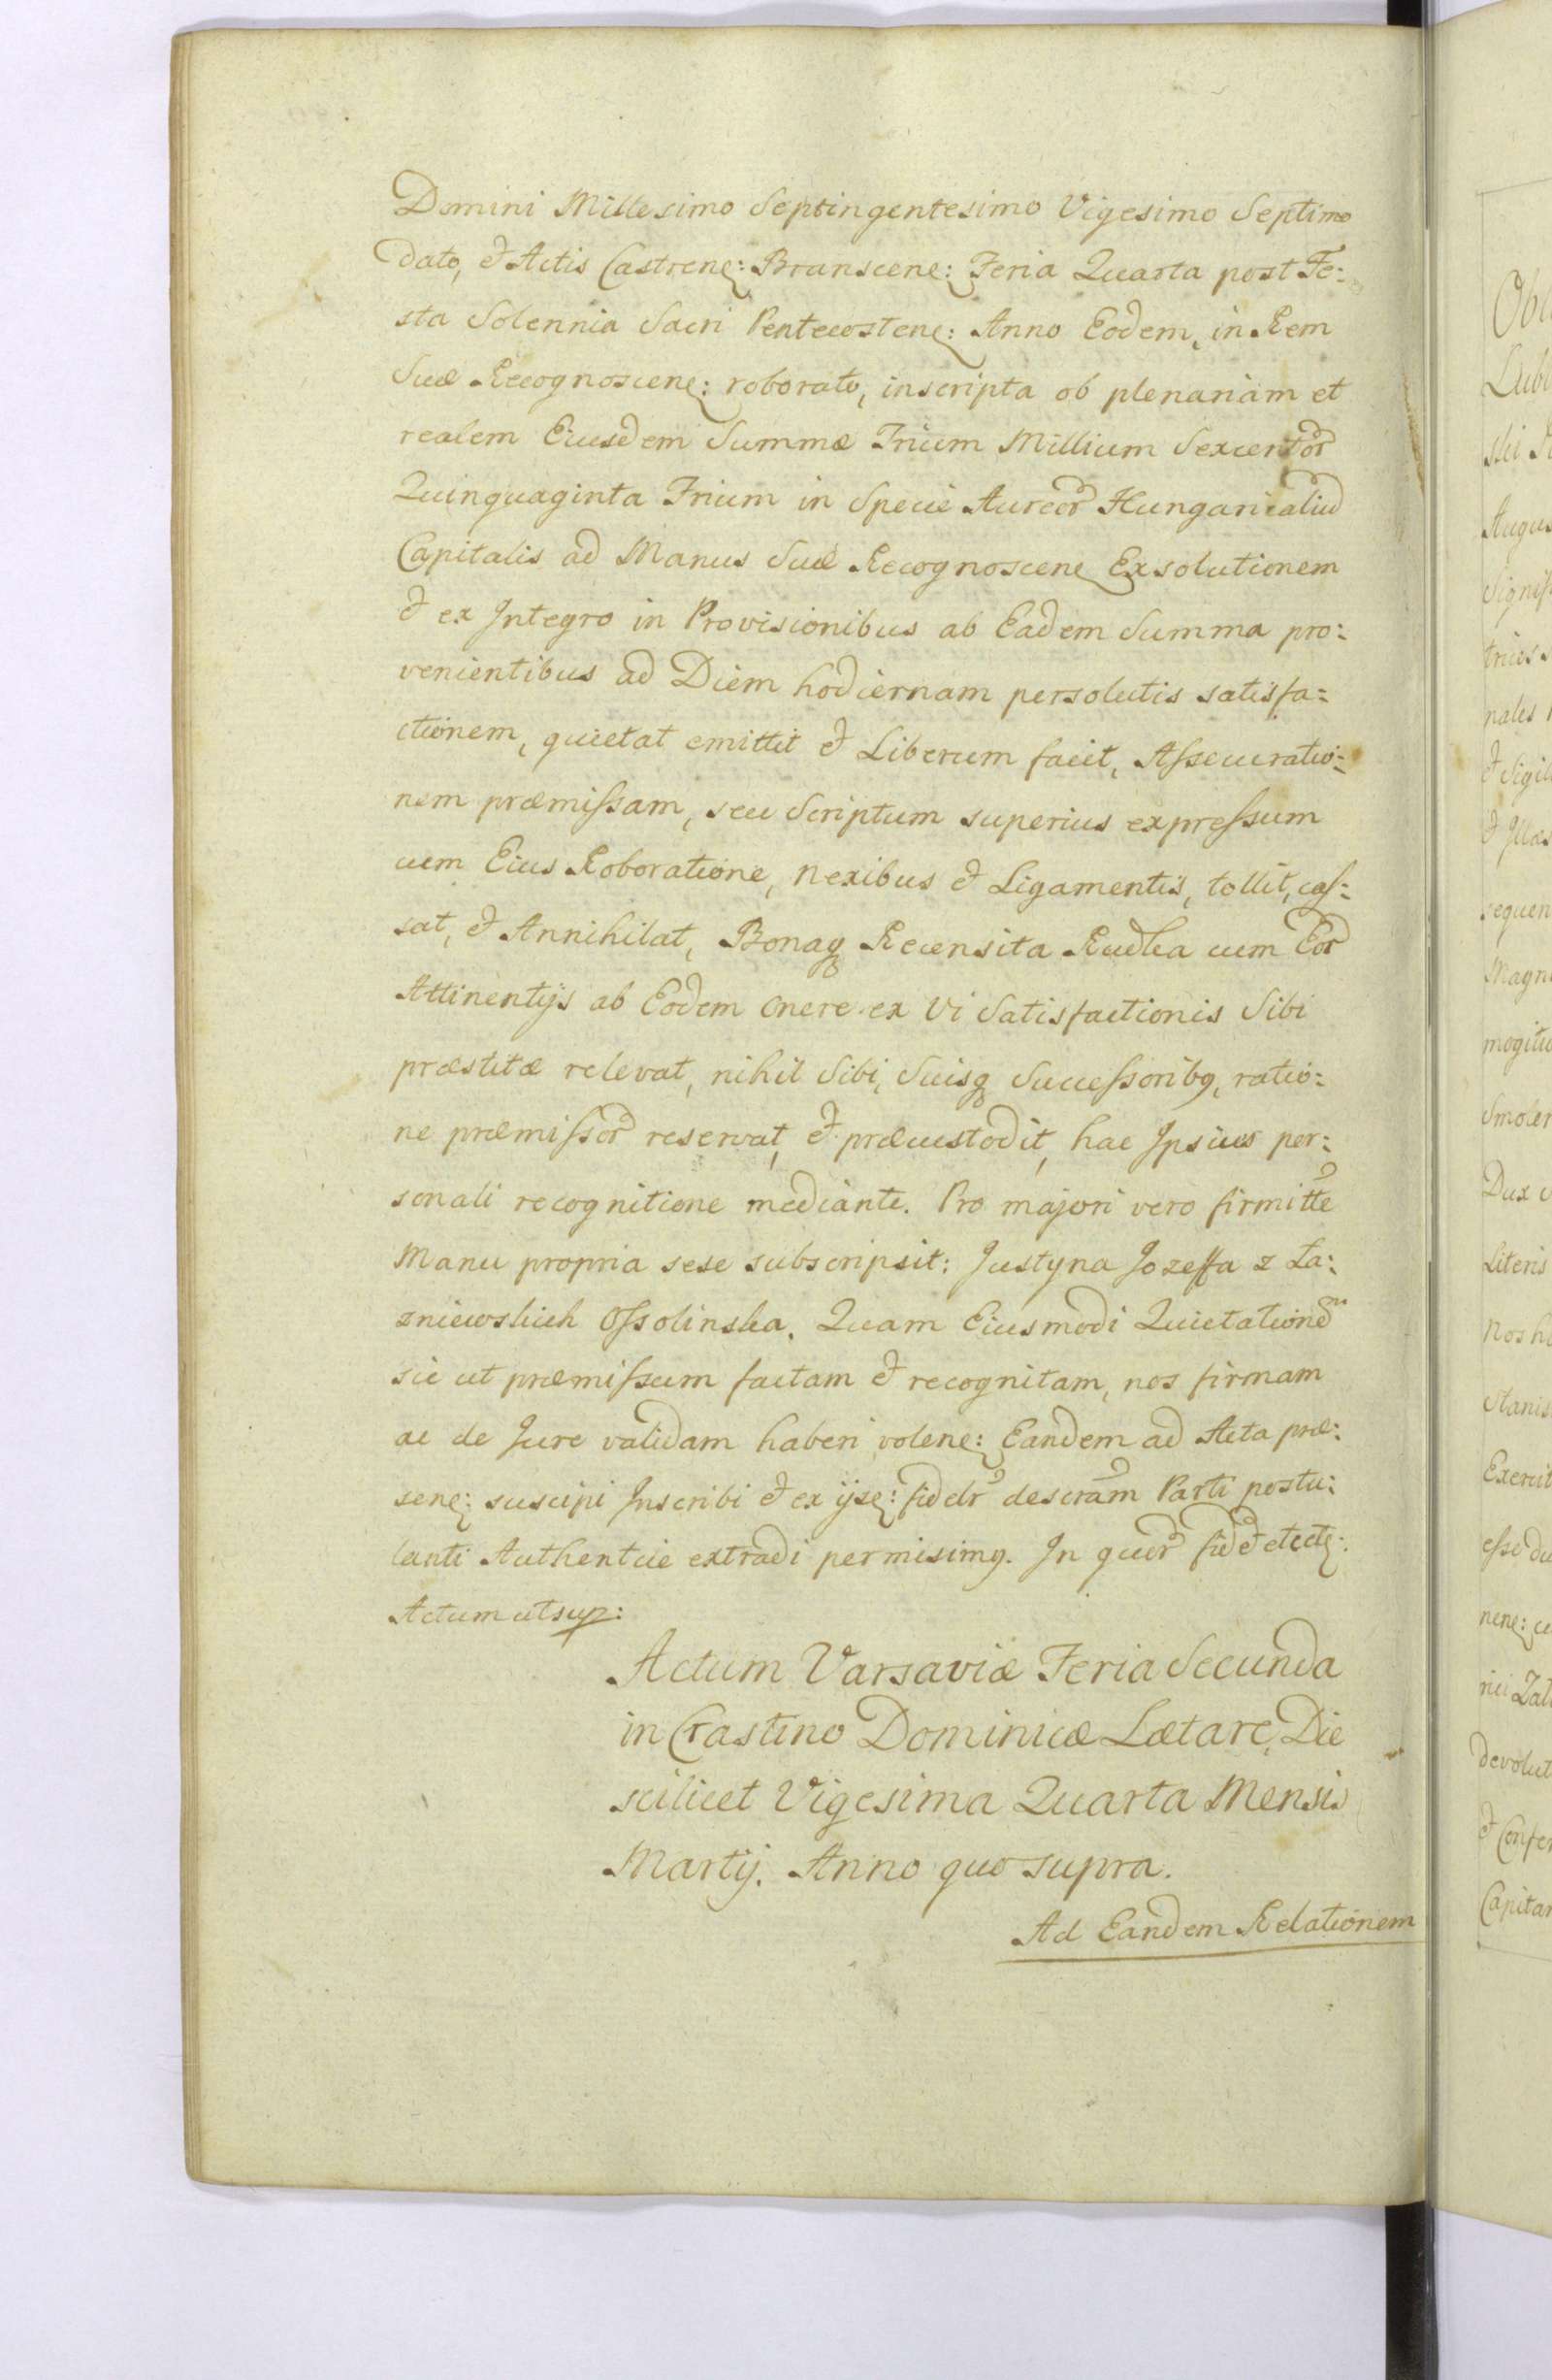 Domini Millesimo Septingentesimo Vigesimo Septimo
dato, et Actis Castrenę: Branscenę: Feria Quarta post Fe:
sta Solennia Sacri Pentecostenę: Anno Eodem, in Rem
Suæ Recognoscenę: roborato, inscripta ob plenariam et
realem Eiusdem Summæ Trium Millium Sexcentor
Quinquaginta Trium in Specie Aureor Hungaricaliu
Capitalis ad Manus Suæ Recognoscenę Exsolutionem
et ex Integro in Provisionibus ab Eadem Summa pro:
venientibus ad Diem hodiernam persolutis satisfa:
ctionem, quietat emittit et Liberum facit, Assecuratio:
nem præmissam, seu Scriptum superius expressum
cum Eius Roboratione, nexibus et Ligamentis, tollit, cas:
sat, et Annihilat, Bonaq Recensita Rudka cum Eor
Attinentijs ab Eodem onere ex Vi Satisfactionis Sibi
præstitæ relevat, nihil Sibi, Suisq Successoribq, ratio:
ne præmissor reservat, et præcustodit, hac Ipsius per:
sonali recognitione mediante. Pro majori vero firmitte
Manu propria sese subscripsit: Justyna Jozeffa z Ła:
zniewskich Ossolinska. Quam Eiusmodi Quietatione
sic ut præmissum factam et recognitam, nos firmam
ac de Jure validam haberi volenę: Eandem ad Acta præ:
senę: suscipi Inscribi et ex ijsę: fidelr descram Parti postu:
lanti Authentcie extradi permisimq. In quor fid et etctę:
Actum ut sup:
Actum Varsaviæ Feria Secunda
in Crastino Dominicæ Lætare, Die
scilicet Vigesima Quarta Mensis
Martij. Anno quo supra.
Ad Eandem Relationem